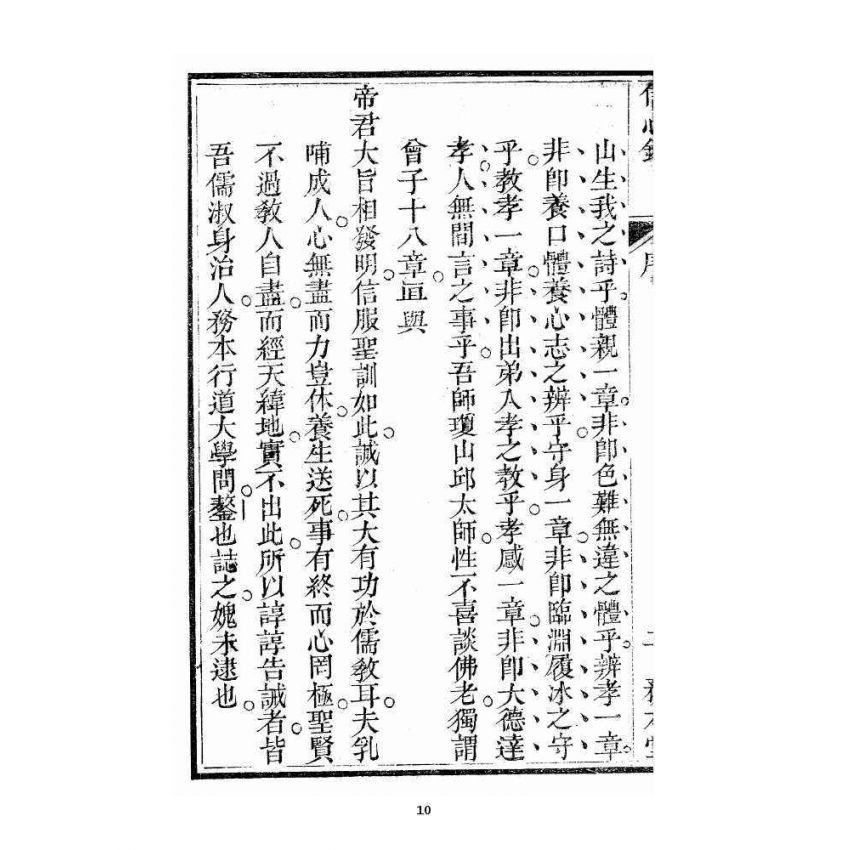 序
山生我之詩乎體親一章非卽色難無違之體乎辨孝一章
非卽養口體養心志之辨乎守身一章非卽臨淵履冰之守
乎教孝一章非卽出弟入孝之教乎孝感一章非卽大德達
孝人無間言之事乎吾師瓊山邱太師性不喜談佛老獨謂
曾子十八章亘與
帝君大旨相發明信服聖訓如此誠以其大有功於儒教耳夫乳
哺成人心無盡而力豈休養生送死事有終而心罔極聖賢
不過教人自盡而經天緯地實不出此所以諄諄告誡者皆
吾儒淑身治人務本行道大學問鏊也誌之媿未逮也
10